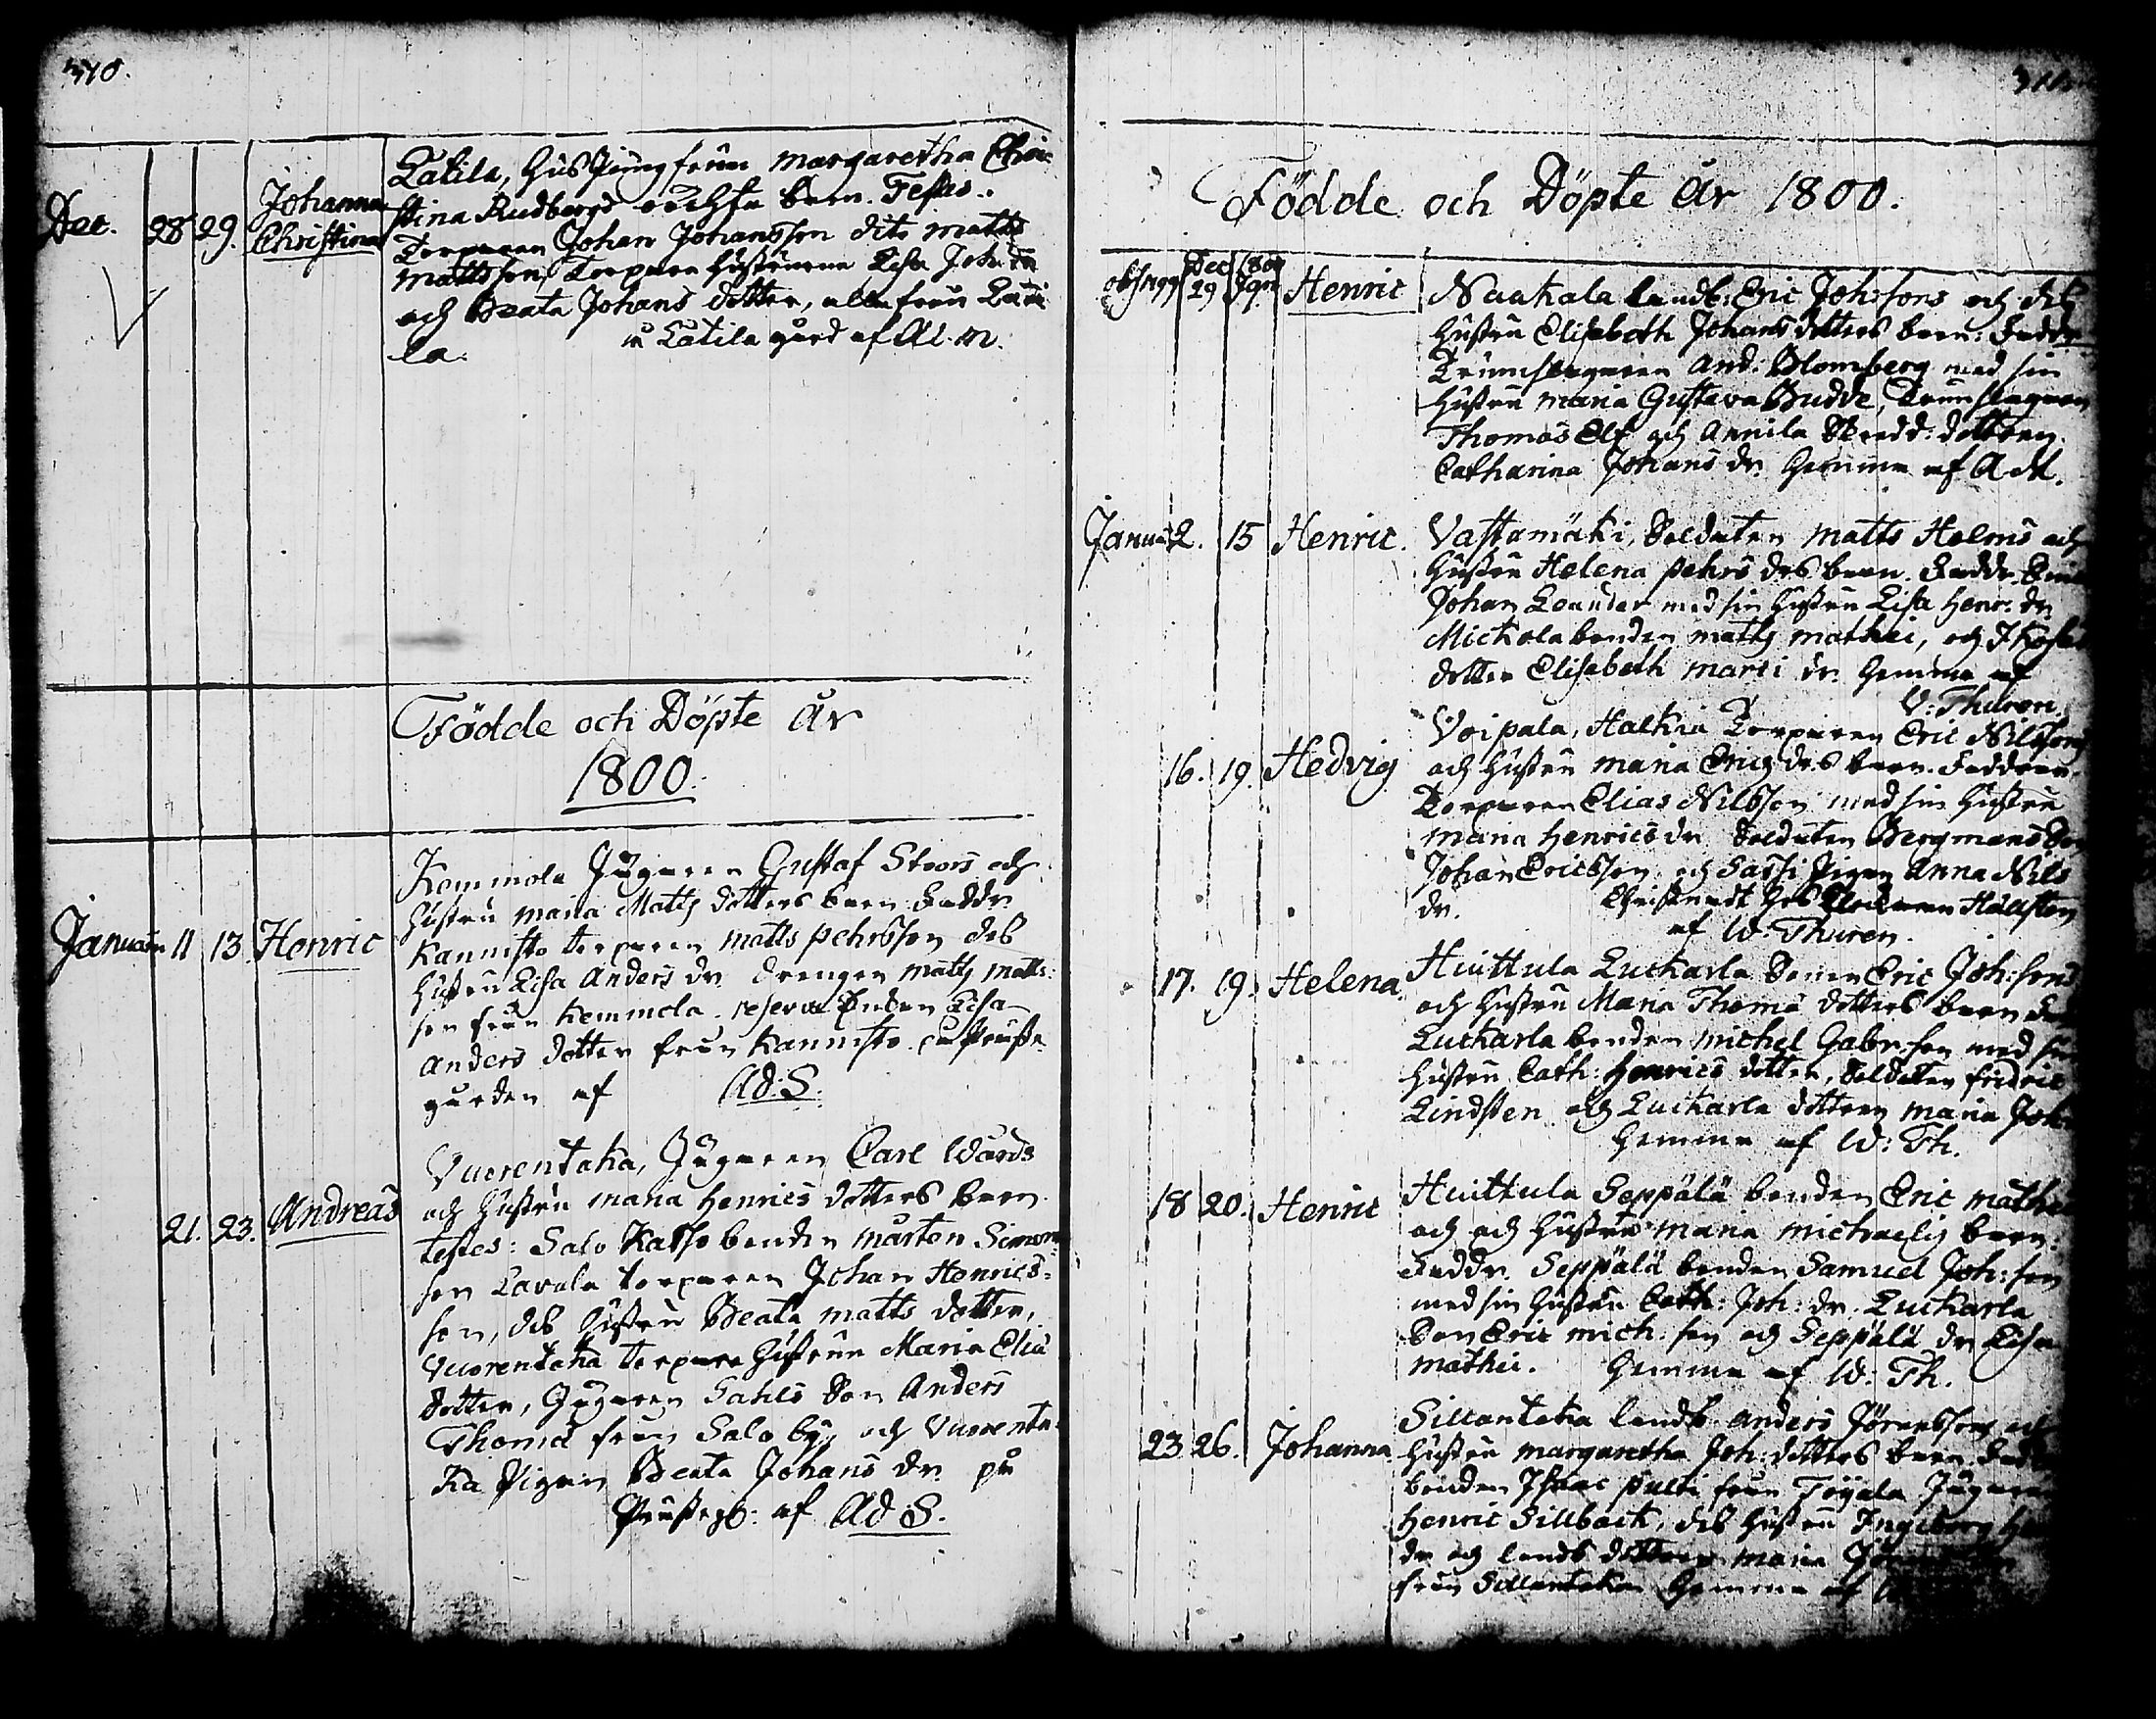 310.
Dec. 28 29. Johanna Christina
Latila, Hus Jungfrun Margaretha Chri-
stina Rudbergs oächta barn. Testes:
Torparen Johan Johansson dito Matts
Mattsson, Torpare hustrurna Lisa Joh: dr
och Beata Johans dotter, alla från Lati
la. i Latila gård af Ad. M.
Födde och Döpte År
1800.
Januari 11 13 Henric
Kemmola Jägaren Gustaf Stoors och
hustru Maria Matts dotters barn Faddr
Kannisto torparen Matts Pehrsson des
hustru Lisa Anders dr drengen Matts Matts-
son från Kemmola. reserve Enkan Lisa
Anders dotter från Kannisto. på Prästa
gården af Ad: S.
21. 23. Andreas
Vuorentaka, Jägaren Carl Wårds
och hustru Maria Henrics dotters barn
testes: Salo Katso bonden Mårten Simons
son Lavala torparen Johan Henrics-
son, des hustru Beata Matts dotter,
Vuorentaka torpare hustrun Maria Eliæ
dotter, Jägaren Sahls Son Anders
Thomæ från Salo by, och Vuorenta-
ka Pigan Beata Johans dr. på
Prästeg: af Ad. S.
311.
Födde och Döpte År 1800.
1799 Dec 29 1800 Jan Henric
Naakala landb: Eric Joh:sons och des
hustru Elisabeth Johans dotters barn: Faddr
Trumslagaren And: Blomberg med sin
hustru Maria Gustava Budde, Trumslagaren
Thomas Elf och Annila Skredd: dottren
Catharina Johans dr. Hemma af Ad.
Janua: 2. 15 Henric.
Vastamäki, Soldaten Matts Holms och
hustru Helena Pehrs drs barn. Faddr.
Johan Lounder med sin hustru Lisa Henr: dr
Mickola bonden Matts Mathei, och
dotter Elisabeth Marci dr. Hemma af
W: Thuren.
16. 19. Hedvig
Voipala, Halkia Torparen Eric Nilssons
och hustru Maria Erics drs barn. Faddrar.
Torparen Elias Nilsson med sin hustru
Maria Henrics dr Soldaten Bergmans Son
Johan Ericsson och Sassi Pigan Anna Nils
dr. Christnadt hos Hallsten
af W: Thuren.
17. 19. Helena
Huittula Luckarla Sonen Eric Joh:sons
och hustru Maria Thomæ dotters barn
Luckarla bonden Michel Gabr:son med sin
hustru Cath: Henrics dotter, Soldaten Fridric
Lindsten och Luckarla dottren Maria Joh:
Hemma af W: Th.
18 20. Henric
Huittula Seppälä bonden Eric Mathei
och och hustru Maria Michaelis barn:
Faddr. Seppälä bonden Samuel Joh:son
med sin hustru Cath: Joh: dr. Luckarla
Son Eric Mich: son och Seppälä dr Lisa
Mathei. Hemma af W: Th.
23 26. Johanna
Sillantaka landb: Anders Jöransson och
hustru Margaretha Joh: dotters barn.
bonden Isaac Pulli från Töyala Jägaren
Henric Sillback, des hustru Ingeborg
dr och landb dottren Maria
från Sillantaka Hemma af